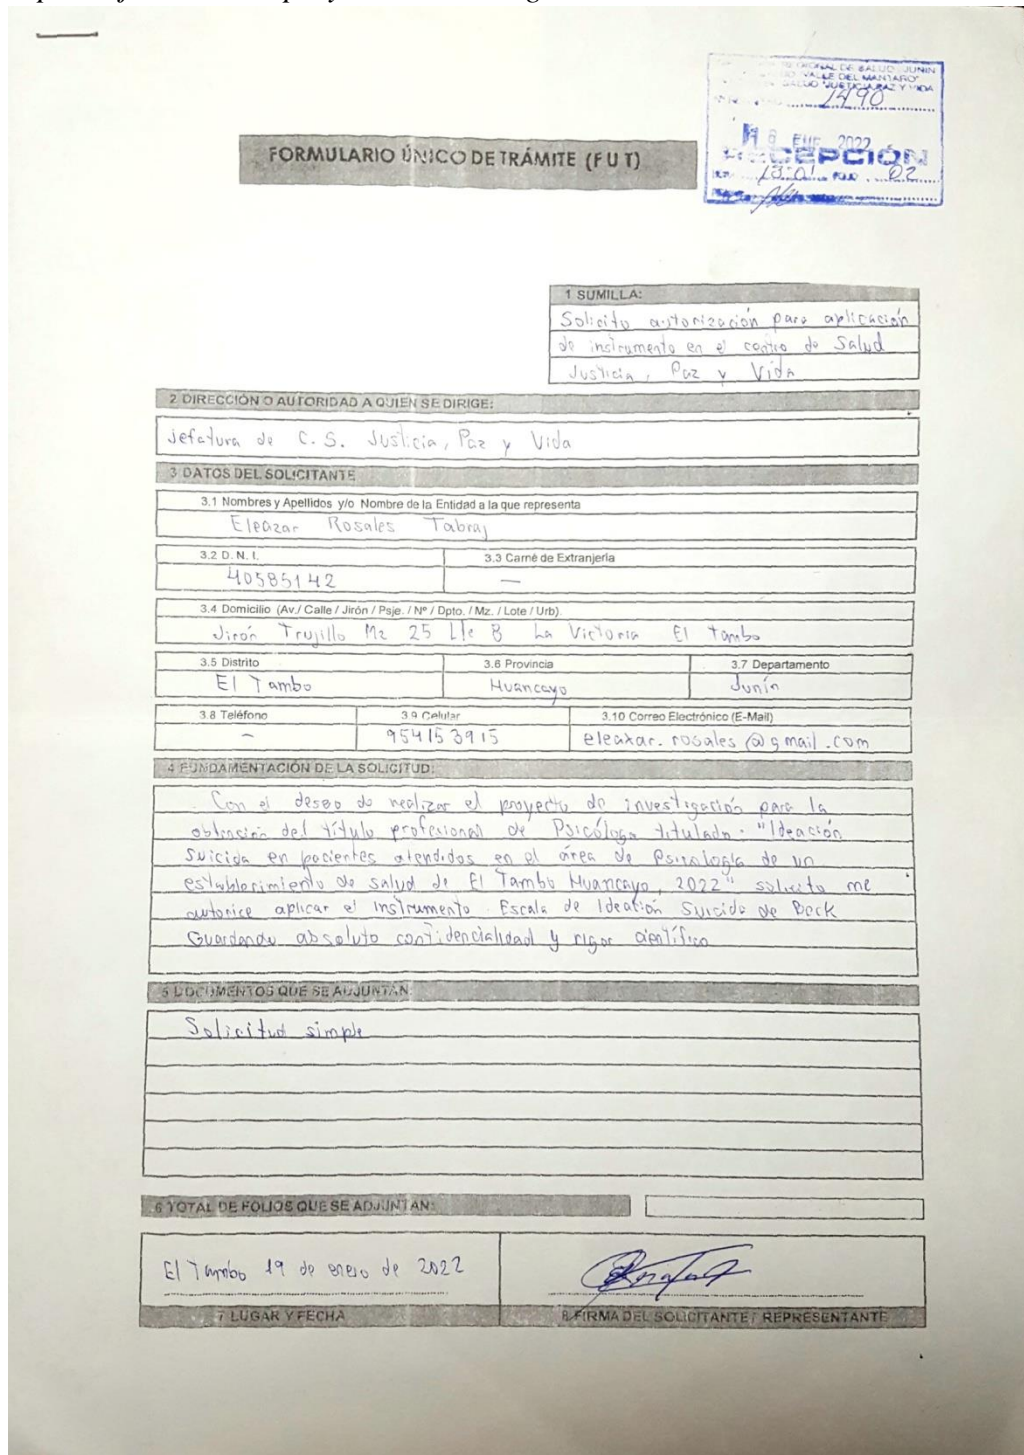 REGIONAL DE SALUD JUNIN
VALLE DEL MANTARO"
SALUD "JUSTICIA PAZ Y VIDA
1490
2022
RECEPCIÓN
13:01 FOLIO 02
FORMULARIO ÚNICO DE TRÁMITE (F U T)
1 SUMILLA:
Solicito autorización para aplicación
de instrumento en el centro de Salud
Justicia, Paz y Vida
2 DIRECCIÓN O AUTORIDAD A QUIEN SE DIRIGE:
Jefatura de C. S. Justicia, Paz y Vida
3 DATOS DEL SOLICITANTE
3.1 Nombres y Apellidos y/o Nombre de la Entidad a la que representa
Eleazar Rosales Tabraj
3.2 D. N. I. 3.3 Carné de Extranjería
40585142 —
3.4 Domicilio (Av./ Calle / Jirón / Psje. / Nº / Dpto. / Mz. / Lote / Urb).
Jirón Trujillo Mz 25 Lte 8 La Victoria El Tambo
3.5 Distrito 3.6 Provincia 3.7 Departamento
El Tambo Huancayo Junín
3.8 Teléfono 3.9 Celular 3.10 Correo Electrónico (E-Mail)
– 954153915 eleazar.rosales@gmail.com
4 FUNDAMENTACIÓN DE LA SOLICITUD:
Con el deseo de realizar el proyecto de investigación para la
obtención del título profesional de Psicólogo titulado: "Ideación
Suicida en pacientes atendidos en el área de Psicología de un
establecimiento de salud de El Tambo Huancayo, 2022" solicito me
autorice aplicar el instrumento Escala de Ideación Suicida de Beck
Guardando absoluto confidencialidad y rigor científico
5 DOCUMENTOS QUE SE ADJUNTAN:
Solicitud simple
6 TOTAL DE FOLIOS QUE SE ADJUNTAN:
El Tambo 19 de enero de 2022
7 LUGAR Y FECHA 8 FIRMA DEL SOLICITANTE / REPRESENTANTE